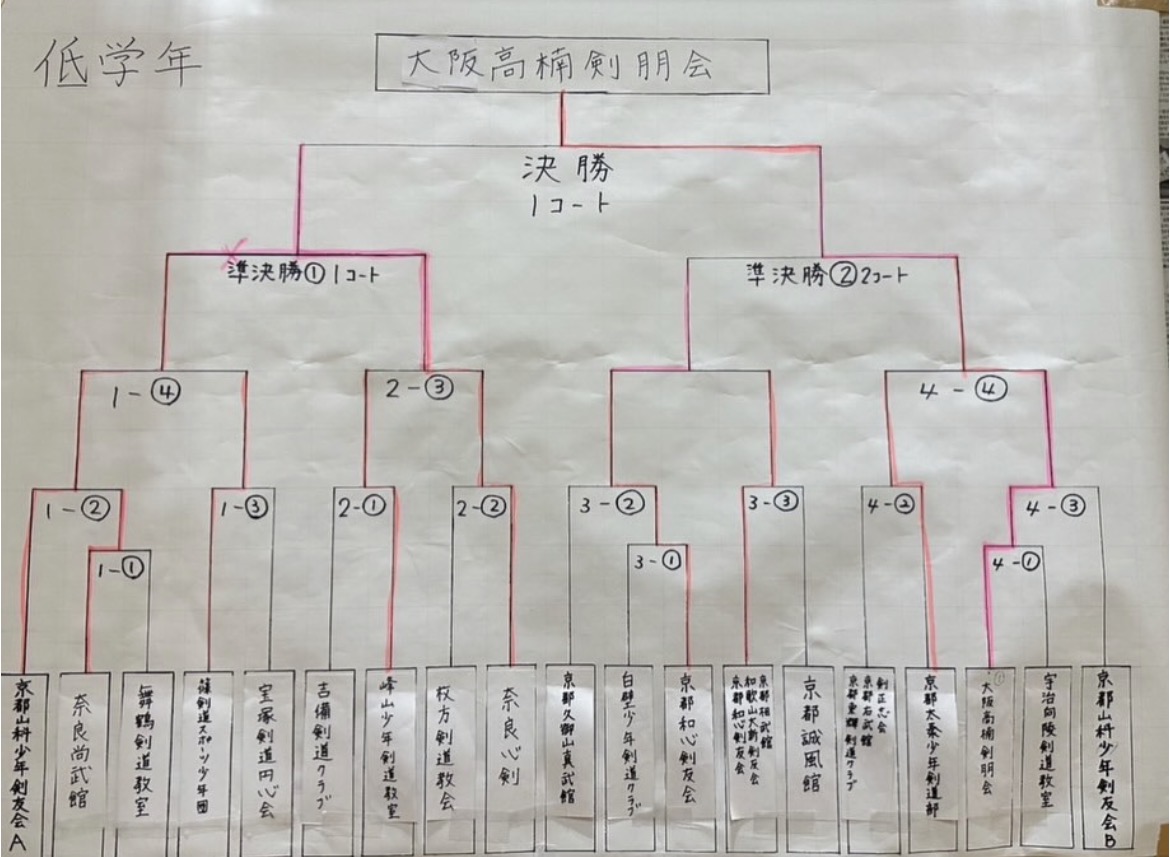 低学年
大阪高楠剣朋会
決勝
1コート
準決勝①1コート
準決勝②2コート
1-④
2-③
4-④
1-②
1-③
2-①
2-②
3-②
3-③
4-②
4-③
1-①
3-①
4-①
京都山科少年剣友会A
奈良尚武館
舞鶴剣道教室
篠剣道スポーツ少年団
宝塚剣道円心会
吉備剣道クラブ
峰山少年剣道教室
枚方剣道教会
奈良心剣
京都久御山真武館
白壁少年剣道クラブ
京都和心剣友会
京都相武館
和歌山大新剣友会
京都和心剣友会
京都誠風館
剣正志会
京都右武館
京都東輝剣道クラブ
京都太秦少年剣道部
大阪高楠剣朋会
宇治向陵剣道教室
京都山科少年剣友会B